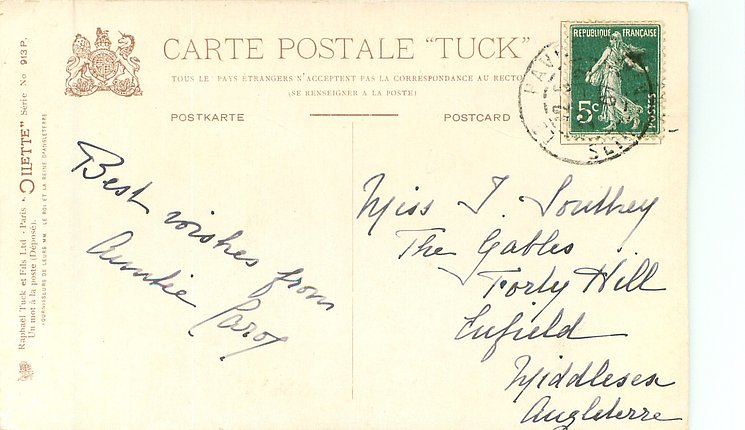 CARTE POSTALE "TUCK"
TOUS LE PAYS ÉTRANGERS N'ACCEPTENT PAS LA CORRESPONDANCE AU RECTO
(SE RENSEIGNER A LA POSTE)
POSTKARTE
POSTCARD
RÉPUBLIQUE FRANÇAISE
5c
POSTES
Best wishes from
Auntie
Miss J. Southey
The Gables
Forty Hill
Enfield
Middlesex
Angleterre
Raphael Tuck et Fils Ltd - Paris - "OILETTE" Série No 913 P.
Un mot à la poste (Déposé).
FOURNISSEURS DE LEURS MM. LE ROI ET LA REINE D'ANGLETERRE